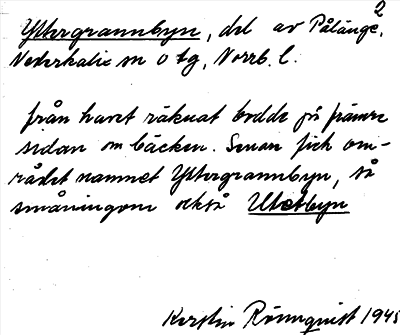 2
Yttergrannbyn, del av Pålänge,
Nederkalix sn o tg, Norrb. l.
från havet räknat bodde på främre
sidan om bäcken. Senan fick om-
rådet namnet Yttergrannbyn, så
småningom också Utetbyn
Kerstin Rönnquist 1945